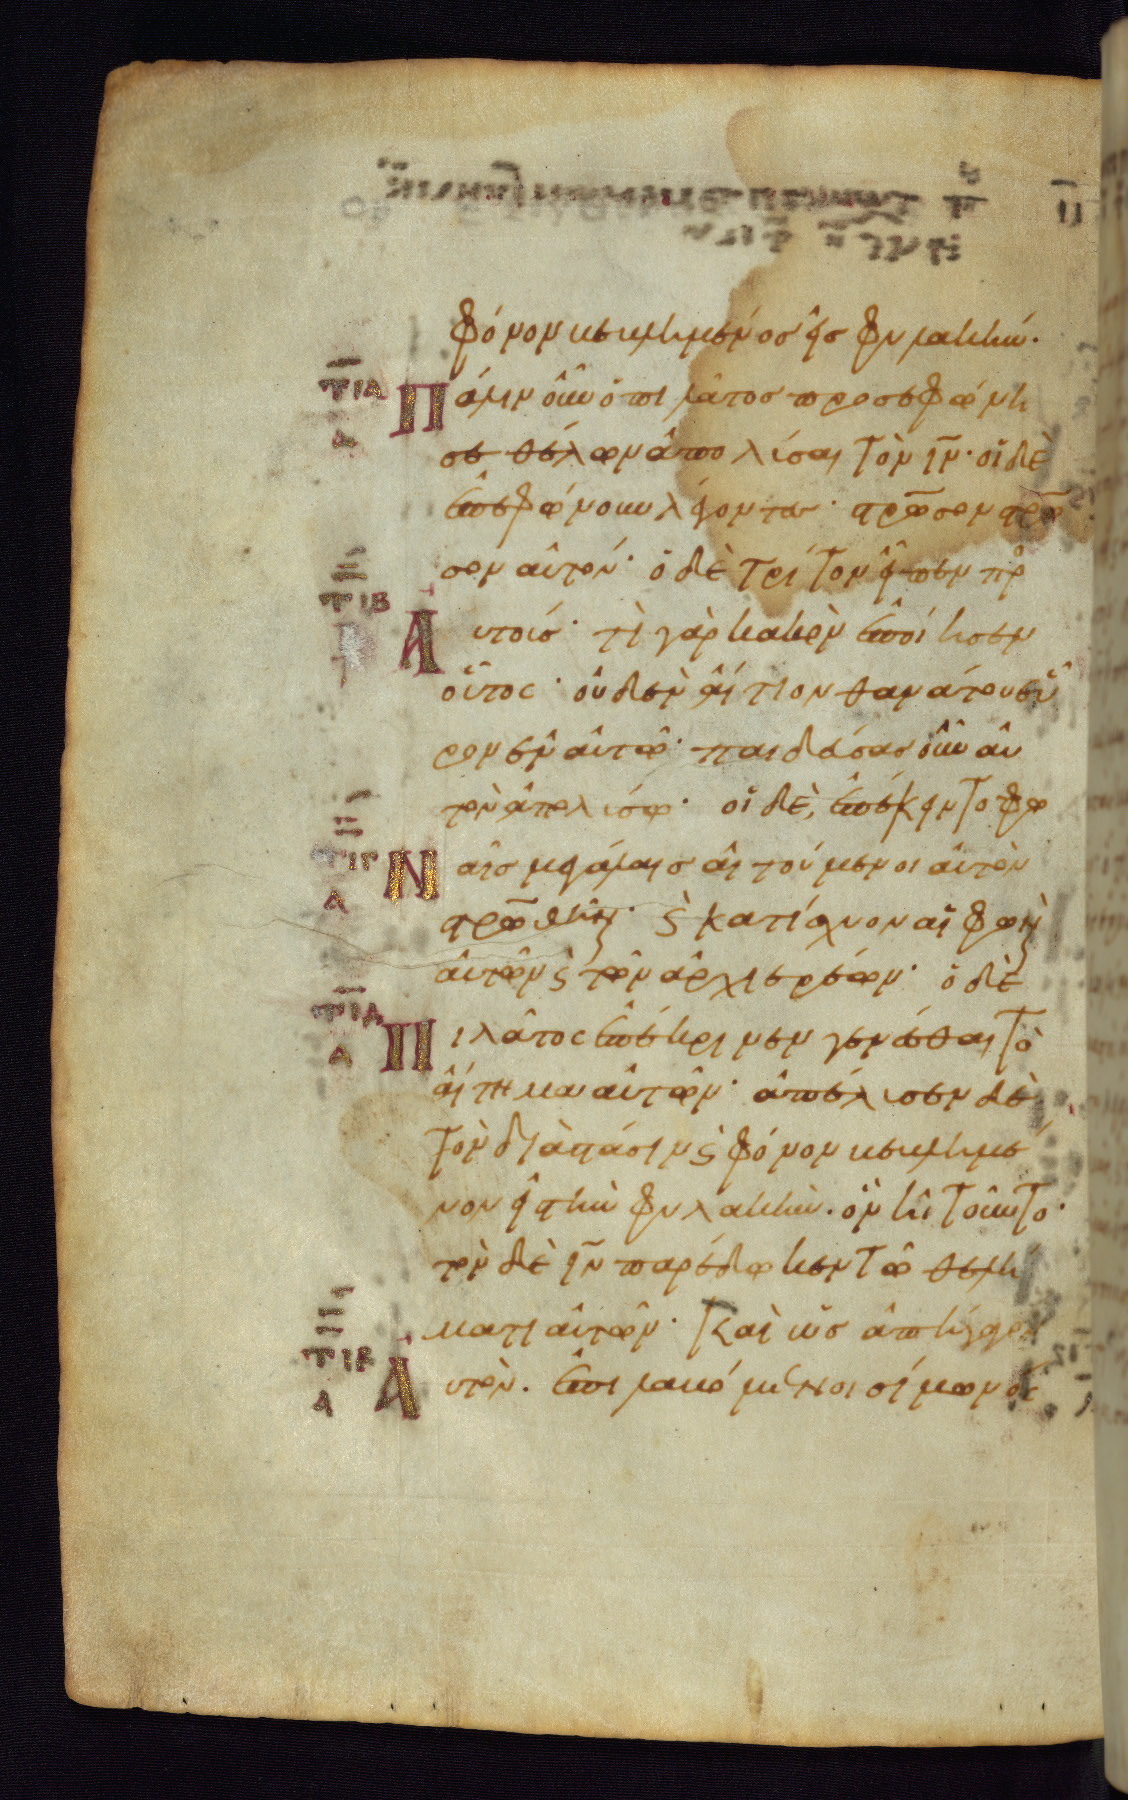 φόνον κεκλημένος εἰς φυλακήν.
τια Πάλιν οὖν ὁ πιλάτος προσεφώνη
α
σε θέλων ἀπολύσαι τὸν ιν̅· οἱ δὲ
ἐπεφώνουν λέγοντες· στρωσον στρω
σον αὐτόν· ὁ δὲ τρίτον εἶπεν πρ
τιβ Αὐτούς· τί γὰρ κακὸν ἐποίησεν
οὗτος· οὐδὲν αἴτιον θανάτου εὗ
ρον ἐν αὐτῶ· παιδεύσας οὖν αὐ
τὸν ἀπολύσω· οἱ δὲ, ἐπέκειντο φω
τιγ Ναῖς μεγάλαις αἰτούμενοι αὐτὸν
α
στρωθῆναι· ϛ κατίσχυον αἱ φωναὶ
αὐτῶν ϛ τῶν ἀρχιερέων· ὁ δὲ
τιδ Πιλάτος ἐπέκρινεν γενέσθαι τὸ
α
αἴτημα αὐτῶν· ἀπέλυσεν δὲ
τὸν διὰ στάσιν ϛ φόνον κεκλημέ
νον εἰς τὴν φυλακὴν. ὃν ἠτοῦντο·
τὸν δὲ ιν̅ παρέδωκεν τῶ θελή
ματι αὐτῶν· Καὶ ὡς ἀπήγαγον
τιε Αὐτὸν. ἐπιλαβόμενοι σίμωνος
α